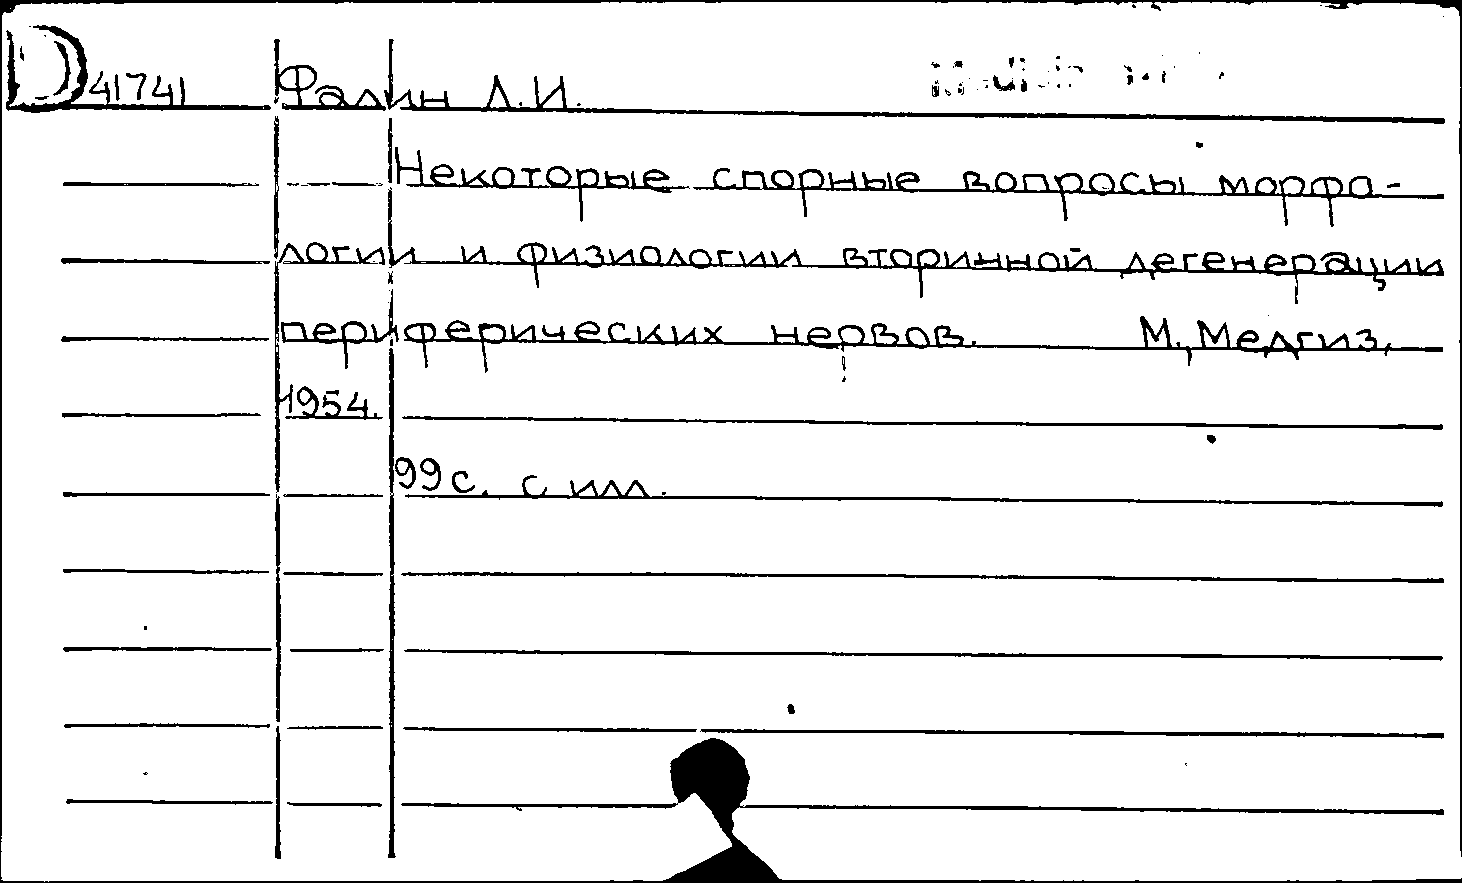 D 41741 Фалин Л.И.
Некоторые спорные вопросы морфо-
логии и физиологии вторичной дегенерации
периферических нервов. М., Медгиз,
1954.
99 с. с илл.